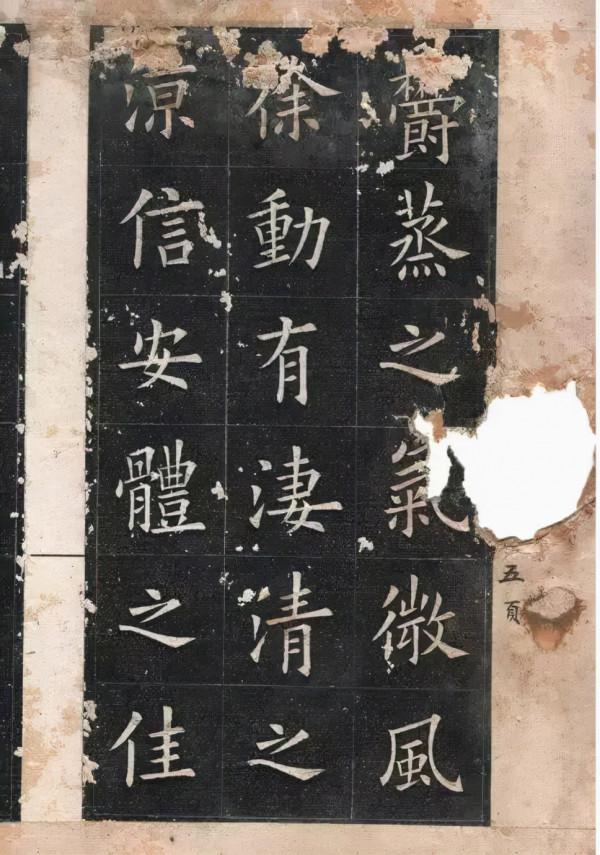 五頁
欝蒸之氣微風
徐動有淒清之
涼信安體之佳